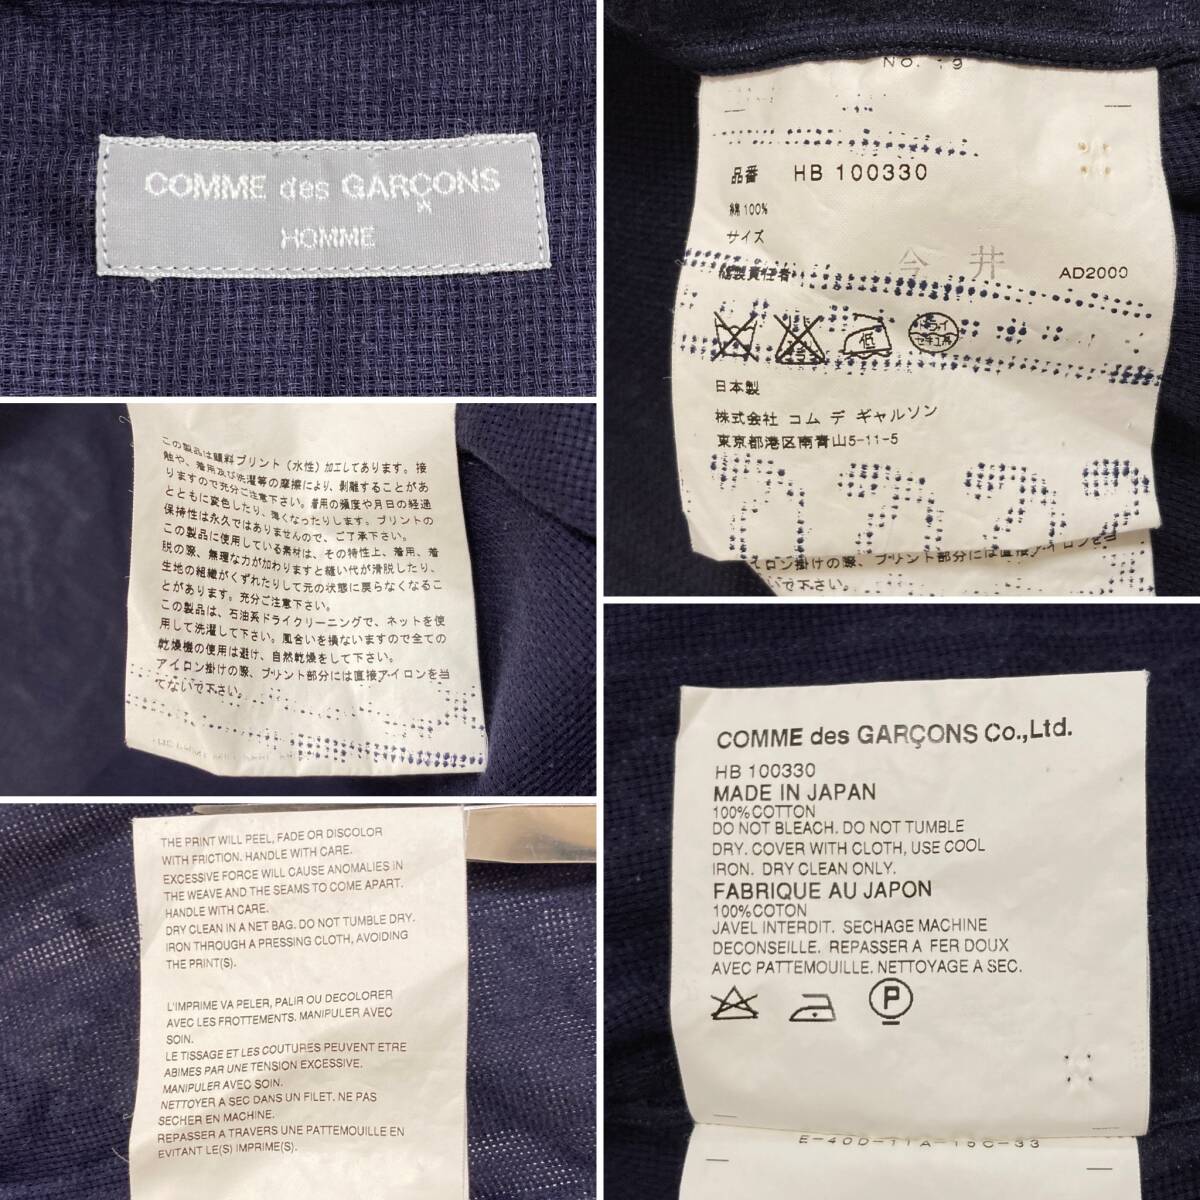 COMME des GARÇONS
HOMME
No. 19
品番 HB 100330
綿100%
サイズ
縫製責任者 今井 AD2000
エンソ
サラシ
低
ドライ
セキユ系
日本製
株式会社 コム デ ギャルソン
東京都港区南青山5-11-5
アイロン掛けの際、プリント部分には直接アイロンを当
てないで下さい。
この製品は顔料プリント（水性）加工してあります。接
触や、着用及び洗濯等の摩擦により、剥離することがあ
りますので充分ご注意下さい。着用の頻度や月日の経過
とともに変色したり、薄くなったりします。プリントの
保持性は永久ではありませんので、ご了承下さい。
この製品に使用している素材は、その特性上、着用、着
脱の際、無理な力が加わりますと縫い代が滑脱したり、
生地の組織がくずれたりして元の状態に戻らなくなるこ
とがあります。充分ご注意下さい。
この製品は、石油系ドライクリーニングで、ネットを使
用して洗濯して下さい。風合いを損ないますので全ての
乾燥機の使用は避け、自然乾燥をして下さい。
アイロン掛けの際、プリント部分には直接アイロンを当
てないで下さい。
THE PRINT WILL PEEL, FADE OR DISCOLOR
WITH FRICTION. HANDLE WITH CARE.
EXCESSIVE FORCE WILL CAUSE ANOMALIES IN
THE WEAVE AND THE SEAMS TO COME APART.
HANDLE WITH CARE.
DRY CLEAN IN A NET BAG. DO NOT TUMBLE DRY.
IRON THROUGH A PRESSING CLOTH, AVOIDING
THE PRINT(S).
L'IMPRIME VA PELER, PALIR OU DECOLORER
AVEC LES FROTTEMENTS. MANIPULER AVEC
SOIN.
LE TISSAGE ET LES COUTURES PEUVENT ETRE
ABIMES PAR UNE TENSION EXCESSIVE.
MANIPULER AVEC SOIN.
NETTOYER A SEC DANS UN FILET. NE PAS
SECHER EN MACHINE.
REPASSER A TRAVERS UNE PATTEMOUILLE EN
EVITANT LE(S) IMPRIME(S).
COMME des GARÇONS Co.,Ltd.
HB 100330
MADE IN JAPAN
100%COTTON
DO NOT BLEACH. DO NOT TUMBLE
DRY. COVER WITH CLOTH, USE COOL
IRON. DRY CLEAN ONLY.
FABRIQUE AU JAPON
100%COTON
JAVEL INTERDIT. SECHAGE MACHINE
DECONSEILLE. REPASSER A FER DOUX
AVEC PATTEMOUILLE. NETTOYAGE A SEC.
P
E-40D-11A-15C-33